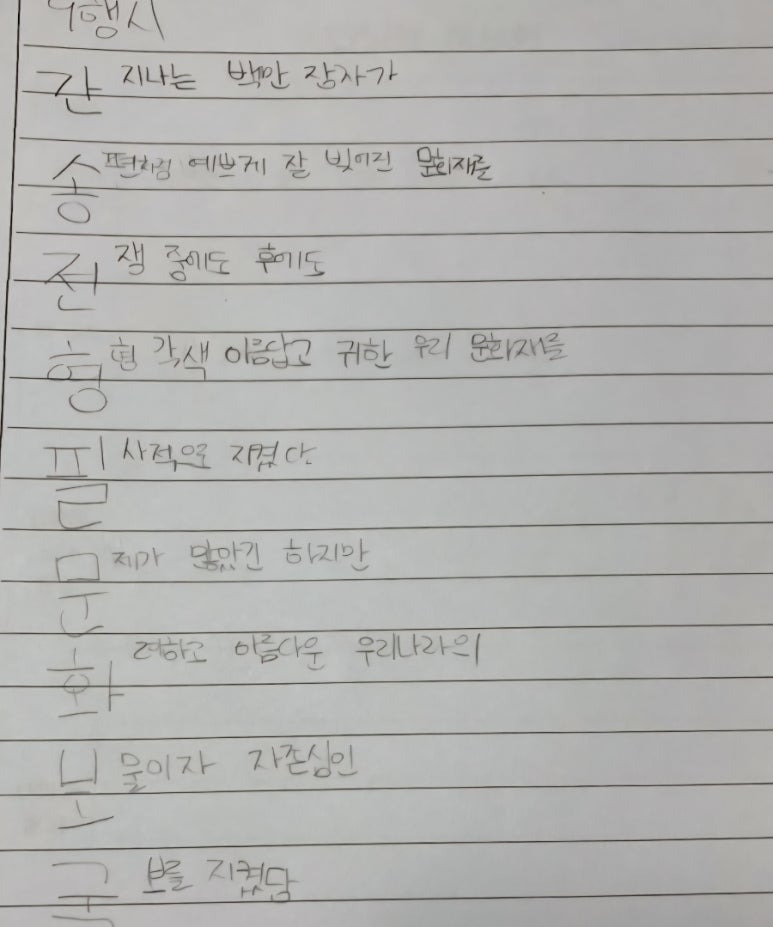 9행시
간 지나는 백만 장자가
송 편처럼 예쁘게 잘 빚어진 문화재를
전 쟁 중에도 후에도
형 형 각색 아름답고 귀한 우리 문화재를
필 사적으로 지켰다
문 제가 많았긴 하지만
화 려하고 아름다운 우리나라의
보 물이자 자존심인
국 보를 지켰담